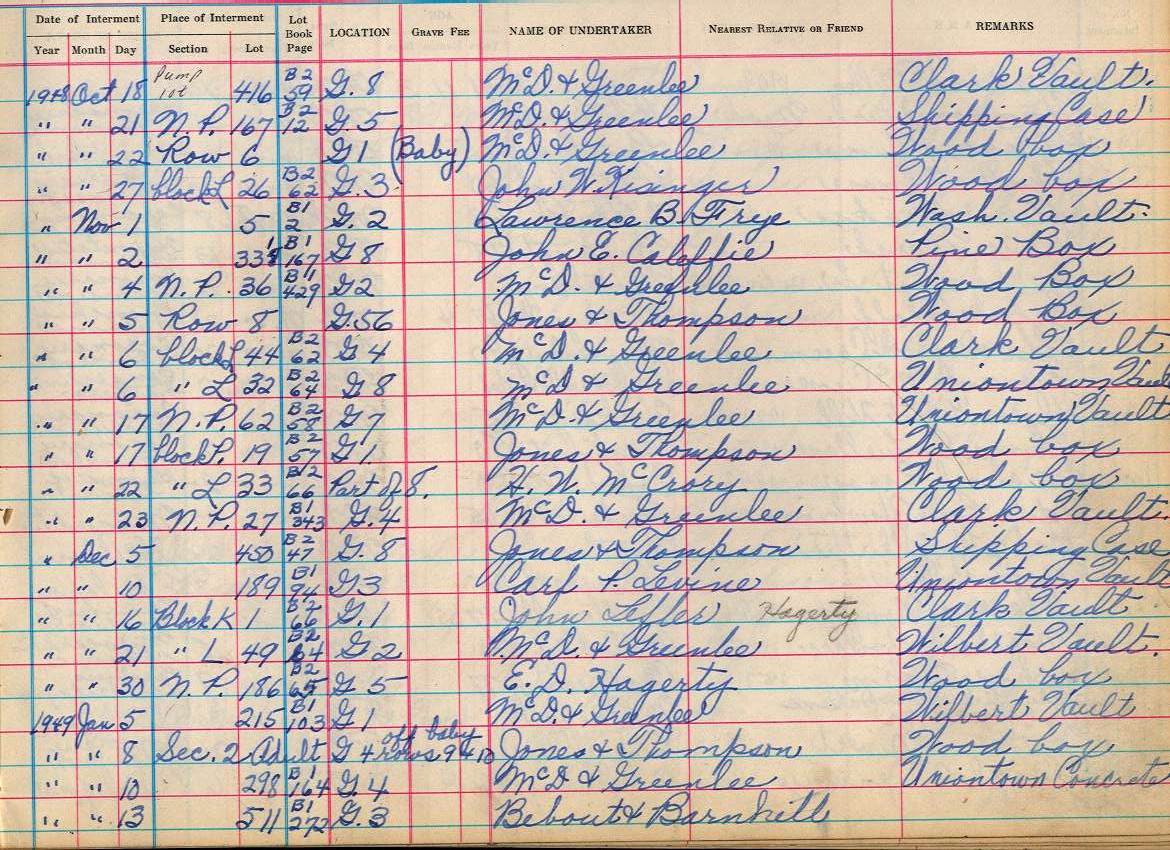 Date of Interment Place of Interment Lot Book Page LOCATION GRAVE FEE NAME OF UNDERTAKER NEAREST RELATIVE OR FRIEND REMARKS
Year Month Day Section Lot
1948 Oct 18 Pump lot 416 B2 59 G. 8 McD. & Greenlee Clark Vault.
" " 21 N.P. 167 B2 12 G. 5 McD. & Greenlee Shipping Case
" " 22 Row 6 G 1 (Baby) McD. & Greenlee Wood box
" " 27 block L 26 B2 62 G. 3 John W. Kisinger Wood box
" Nov 1 5 B1 2 G. 2 Lawrence B. Frye Wash. Vault.
" " 2 B1 167 G 8 John E. Caleffie Pine Box
" " 4 N.P. 36 B1 429 G 2 McD. & Greenlee Wood Box
" " 5 Row 8 G. 56 Jones & Thompson Wood Box
" " 6 block L 44 B2 62 G 4 McD. & Greenlee Clark Vault
" " 6 " L 32 B2 64 G 8 McD & Greenlee Uniontown Vault
" " 17 N.P. 62 B2 58 G 7 McD. & Greenlee Uniontown Vault
" " 17 block 19 B2 57 G 1. Jones & Thompson Wood box
" " 22 " L 33 B2 66 Part of 8. H. W. McCrory Wood box
" " 23 N.P. 27 B1 343 G. 4 McD. & Greenlee Clark Vault.
" Dec 5 450 B2 47 G. 8 Jones & Thompson Shipping Case
" " 10 189 B1 94 G 3 Carl P. Levine Uniontown Vault
" " 16 Block K 1 B2 66 G. 1 John Lefler Hagerty Clark Vault
" " 21 " L 49 B2 64 G 2 McD. & Greenlee Wilbert Vault.
" " 30 N.P. 186 B2 G. 5 E. D. Hagerty Wood box
1949 Jan 5 215 B1 103 G 1 McD. & Greenlee Wilbert Vault
" " 8 Sec. 2 Adult G 4 off baby rows 9 & 10 Jones & Thompson Wood box
" " 10 298 B1 164 G. 4 McD & Greenlee Uniontown Concrete
" " 13 511 B1 272 G. 3 Bebout & Barnhill